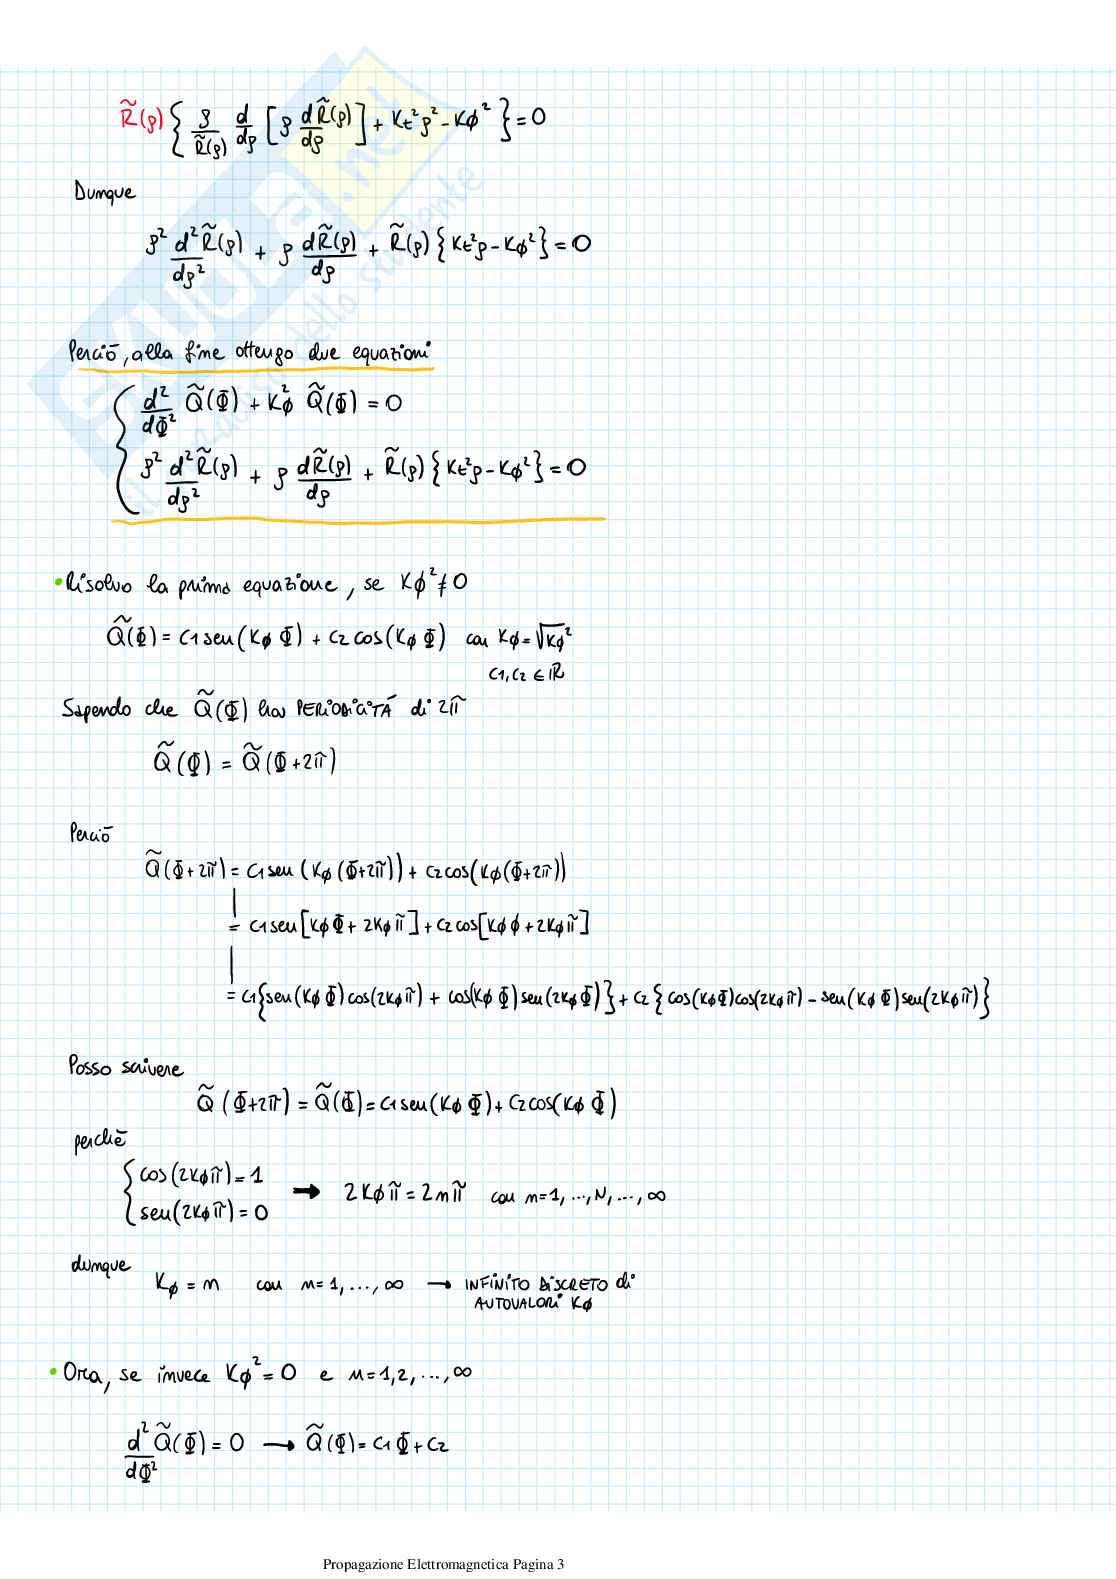 R̃(ρ) { ρ/R̃(ρ) d/dρ [ ρ dR̃(ρ)/dρ ] + Kt²ρ² - Kϕ² } = 0
Dunque
ρ² d²R̃(ρ)/dρ² + ρ dR̃(ρ)/dρ + R̃(ρ) { Kt²ρ - Kϕ² } = 0
Perciò, alla fine ottengo due equazioni
{ d²/dΦ² Q̃(Φ) + Kϕ² Q̃(Φ) = 0
ρ² d²R̃(ρ)/dρ² + ρ dR̃(ρ)/dρ + R̃(ρ) { Kt²ρ - Kϕ² } = 0
• Risolvo la prima equazione, se Kϕ² ≠ 0
Q̃(Φ) = C1 sen(Kϕ Φ) + C2 cos(Kϕ Φ) con Kϕ = √Kϕ²
C1, C2 ∈ ℝ
Sapendo che Q̃(Φ) ha PERIODICITÁ di 2π
Q̃(Φ) = Q̃(Φ+2π)
Perciò
Q̃(Φ+2π) = C1 sen(Kϕ(Φ+2π)) + C2 cos(Kϕ(Φ+2π))
= C1 sen[KϕΦ + 2Kϕπ] + C2 cos[Kϕϕ + 2Kϕπ]
= C1{sen(KϕΦ)cos(2Kϕπ) + cos(KϕΦ)sen(2KϕΦ)} + C2{cos(KϕΦ)cos(2Kϕπ) - sen(KϕΦ)sen(2Kϕπ)}
Posso scrivere
Q̃(Φ+2π) = Q̃(Φ) = C1 sen(Kϕ Φ) + C2 cos(Kϕ Φ)
perchè
{ cos(2Kϕπ) = 1
sen(2Kϕπ) = 0 → 2Kϕπ = 2mπ con m = 1, ..., N, ..., ∞
dunque
Kϕ = m con m = 1, ..., ∞ → INFINITO DISCRETO di
AUTOVALORI Kϕ
• Ora, se invece Kϕ² = 0 e m = 1, 2, ..., ∞
d²/dΦ² Q̃(Φ) = 0 → Q̃(Φ) = C1 Φ + C2
Propagazione Elettromagnetica Pagina 3